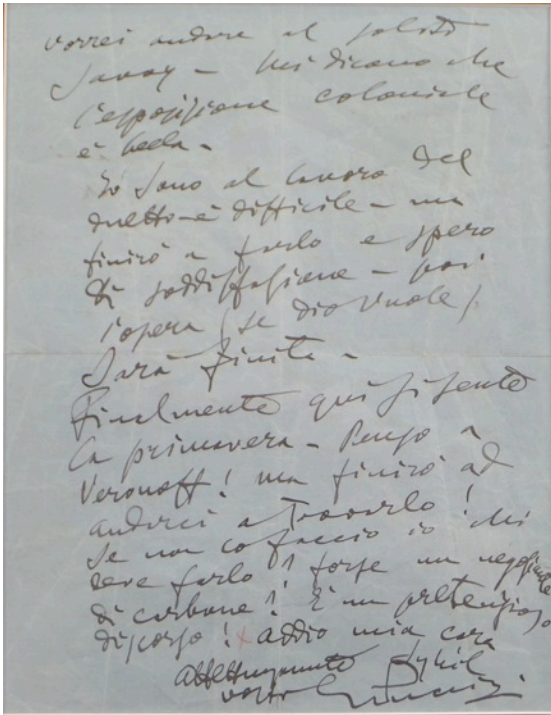 vorrei andare al solito
Savoy – mi dicono che
l'esposizione coloniale
è bella –
Io sono al lavoro del
duetto – è difficile – ma
finirò a farlo e spero
di soddisfazione – poi
l'opera (se dio vuole)
Sarà finita –
Finalmente qui si sente
la primavera – Penso a
Veronoff! ma finirò ad
andarci a trovarlo!
Se non lo faccio io chi
deve farlo? forse un negoziante
di carbone? È un pretenzioso
discorso! x addio mia cara
Sybil
affettuosamente
vostro